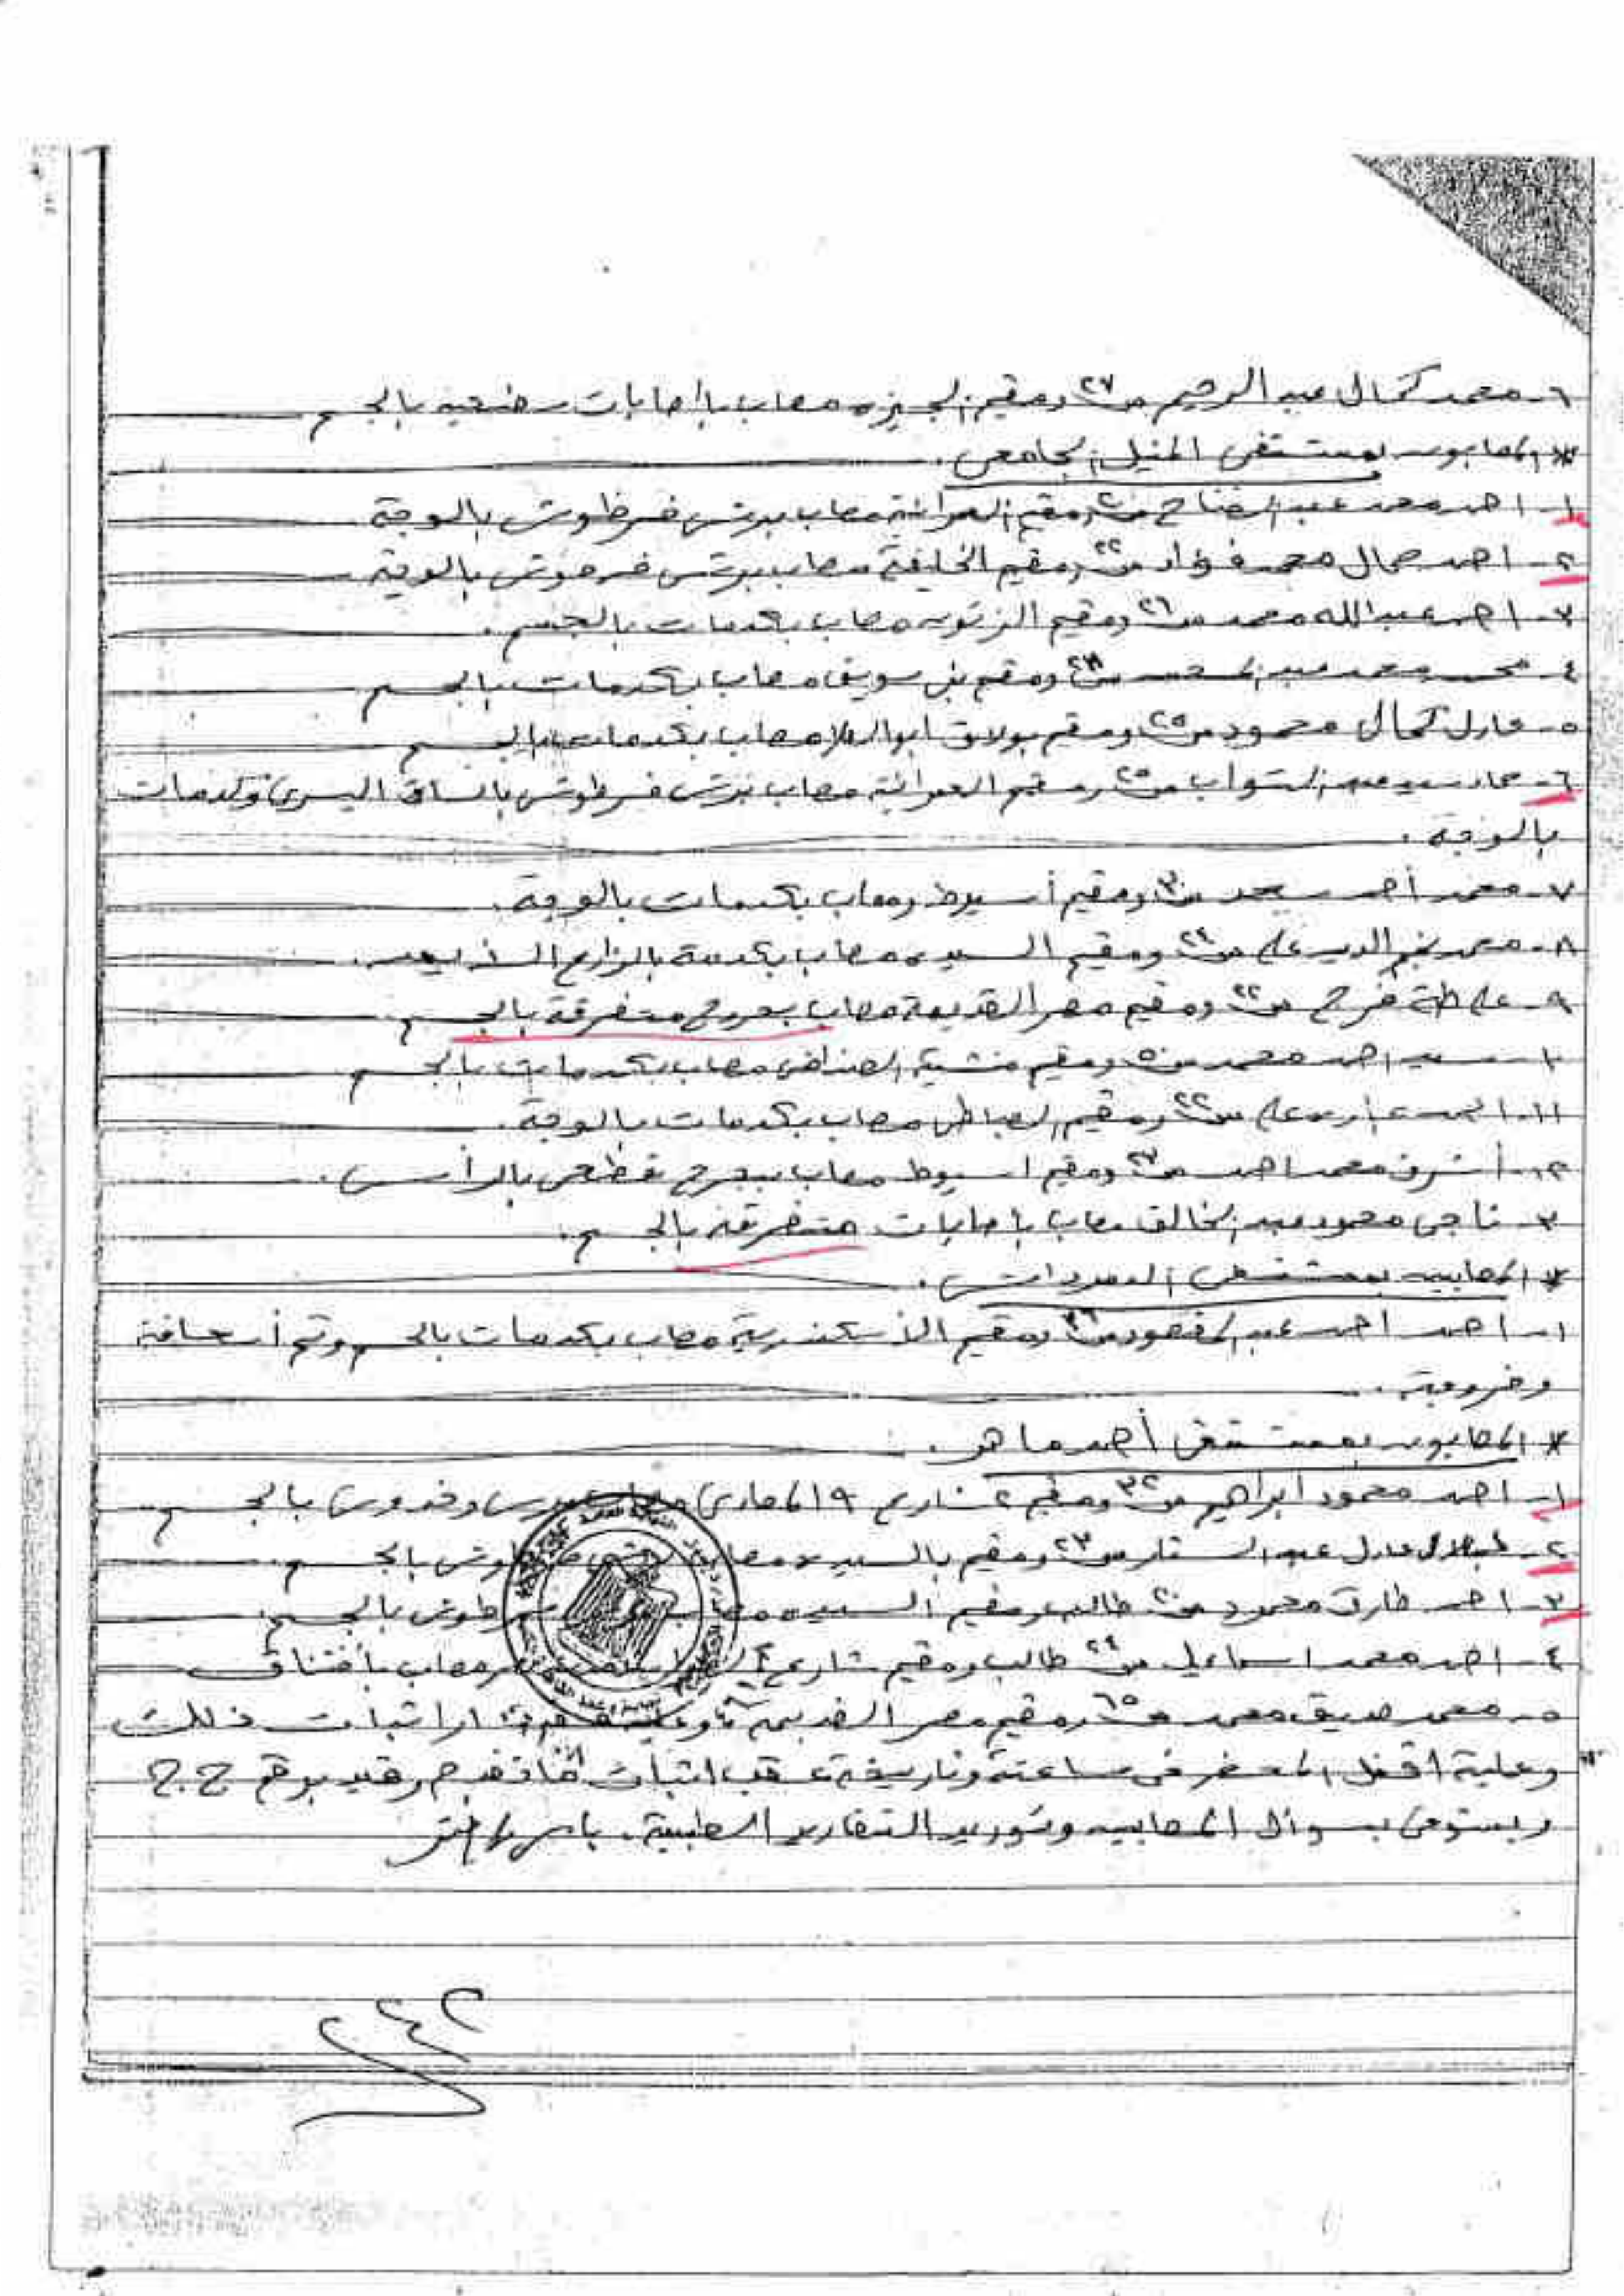 ٦- محمد كمال عبد الرحيم سن ٢٧ ومقيم الجيزه ومصاب بإصابات سطحيه بالجسم
* المصابون بمستشفى المنيل الجامعى .
١- احمد محمد عبد الفتاح سن ومقيم العمرانية مصاب برش خرطوش بالوجة
٢- احمد جمال محمد فؤاد سن ٢٢ ومقيم الخليفة مصاب برش خرطوش بالوجة
٣- احمد عبد الله محمد سن ٢٦ ومقيم الزيتون مصاب بكدمات بالجسم .
٤- محمد عبد سن ٢٨ ومقيم بنى سويف مصاب بكدمات بالجسم
٥- عادل كمال محمود سن ٢٥ ومقيم بولاق ابو العلا مصاب بكدمات بالجسم
٦- عماد سيد عبد التواب سن ٢٥ ومقيم العمرانية مصاب برش خرطوش بالساق اليسرى وكدمات
بالوجه .
٧- محمد أحمد سعد سن ٣٠ ومقيم أسيوط ومصاب بكدمات بالوجة .
٨- محمد نجم الدين على سن ٢٤ ومقيم السيده مصاب بكدمة بالزارع
٩- على طة فرج سن ٢٢ ومقيم مصر القديمة مصاب بجروح متفرقة بالجسم
١٠- سيد احمد محمد سن ومقيم منشية مصاب بكدمات بالجسم
١١- على سن ٢٢ ومقيم مصاب بكدمات بالوجة .
١٢- أشرف محمد احمد سن ومقيم اسيوط مصاب بجرح قطعى بالرأس .
١٣- ناجى محمود عبد الخالق مصاب بإصابات متفرقة بالجسم .
* المصابين بمستشفى
١- احمد احمد عبد المقصود سن ومقيم الأسكندرية مصاب بكدمات بالجسم وتم أسعافة
وخروجة .
* المصابون بمستشفى أحمد ماهر .
١- احمد محمود ابراهيم سن ٣٢ ومقيم ٢ شارع ١٩ المعادى وخدوش بالجسم
٢- عادل عبد الستار سن ٢٣ ومقيم بالسيده مصاب خرطوش بالجسم
٣- احمد طارق محمود سن ٢٠ طالب ومقيم السيده مصاب خرطوش بالجسم
٤- احمد محمد اسماعيل سن ٢٤ طالب ومقيم شارع مصاب بأختناق
٥- محمد صديق محمد سن ٦٥ ومقيم مصر القديمة اثبات ذلك
وعلية اقفل المحضر فى ساعتة وتاريخة عقب اثبات ما تقدم وقيد برقم ح ح
ويستوفى بسؤال المصابين وتوريد التقارير الطبية .